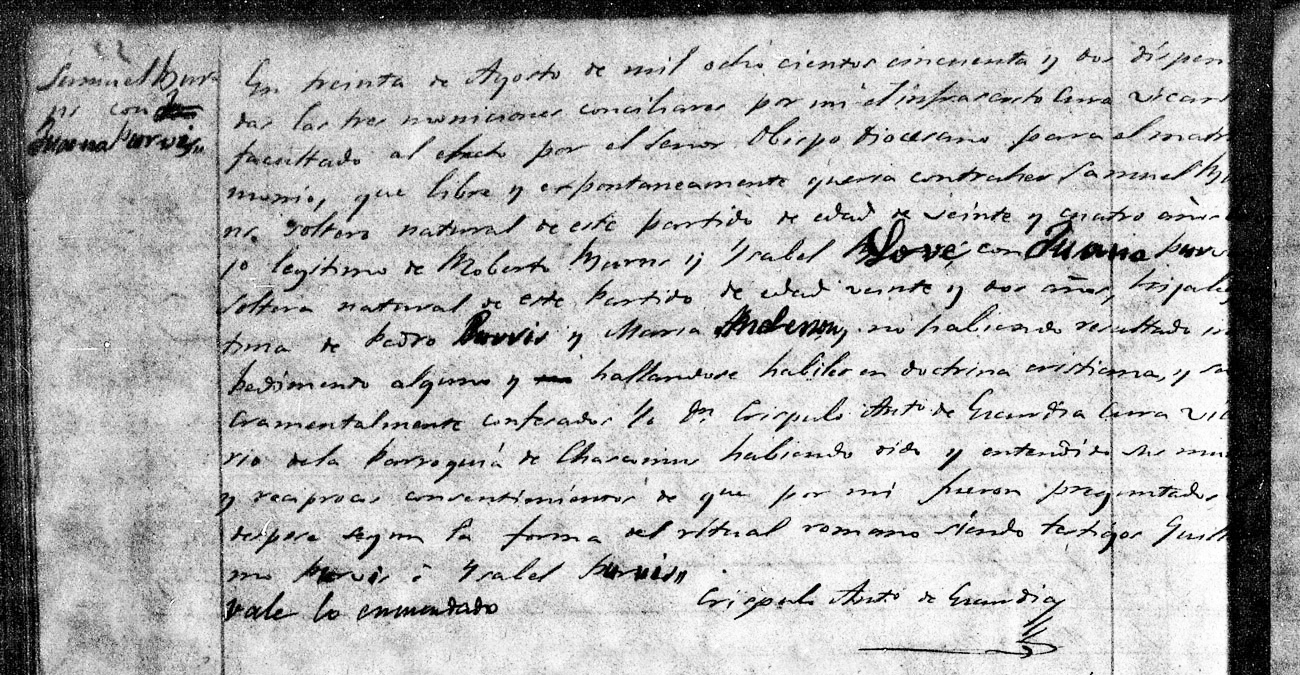 Samuel Bur-
ns con
Juana Purvis
En treinta de Agosto de mil ocho cientos cincuenta y dos dispen
das las tres moniciones conciliares por mi el infrascrito Cura Vicar
facultado al efecto por el Señor Obispo Diocesano para el matr
monio, que libre y expontaneamente queria contraher Samuel Bu
ns. soltero natural de este partido de edad de veinte y cuatro años
jo legitimo de Roberto Burns y Ysabel Love, con Juana Purv
soltera natural de este Partido de edad veinte y dos años, hija leg
tima de Pedro Purvis y Maria Anderson, no habiendo resultado im
pedimento alguno y hallandose habiles en doctrina cristiana, y sa
cramentalmente confesados Yo Dn Crispulo Anto de Grandia Cura Vic
rio dela Parroquia de Chascomus habiendo oido y entendido sus mu
y reciprocos consentimientos de que por mi fueron preguntados
despose segun la forma del ritual romano siendo testigos Guill
mo Purvis é Ysabel Purvis
Vale lo enmendado
Crispulo Anto de Grandia